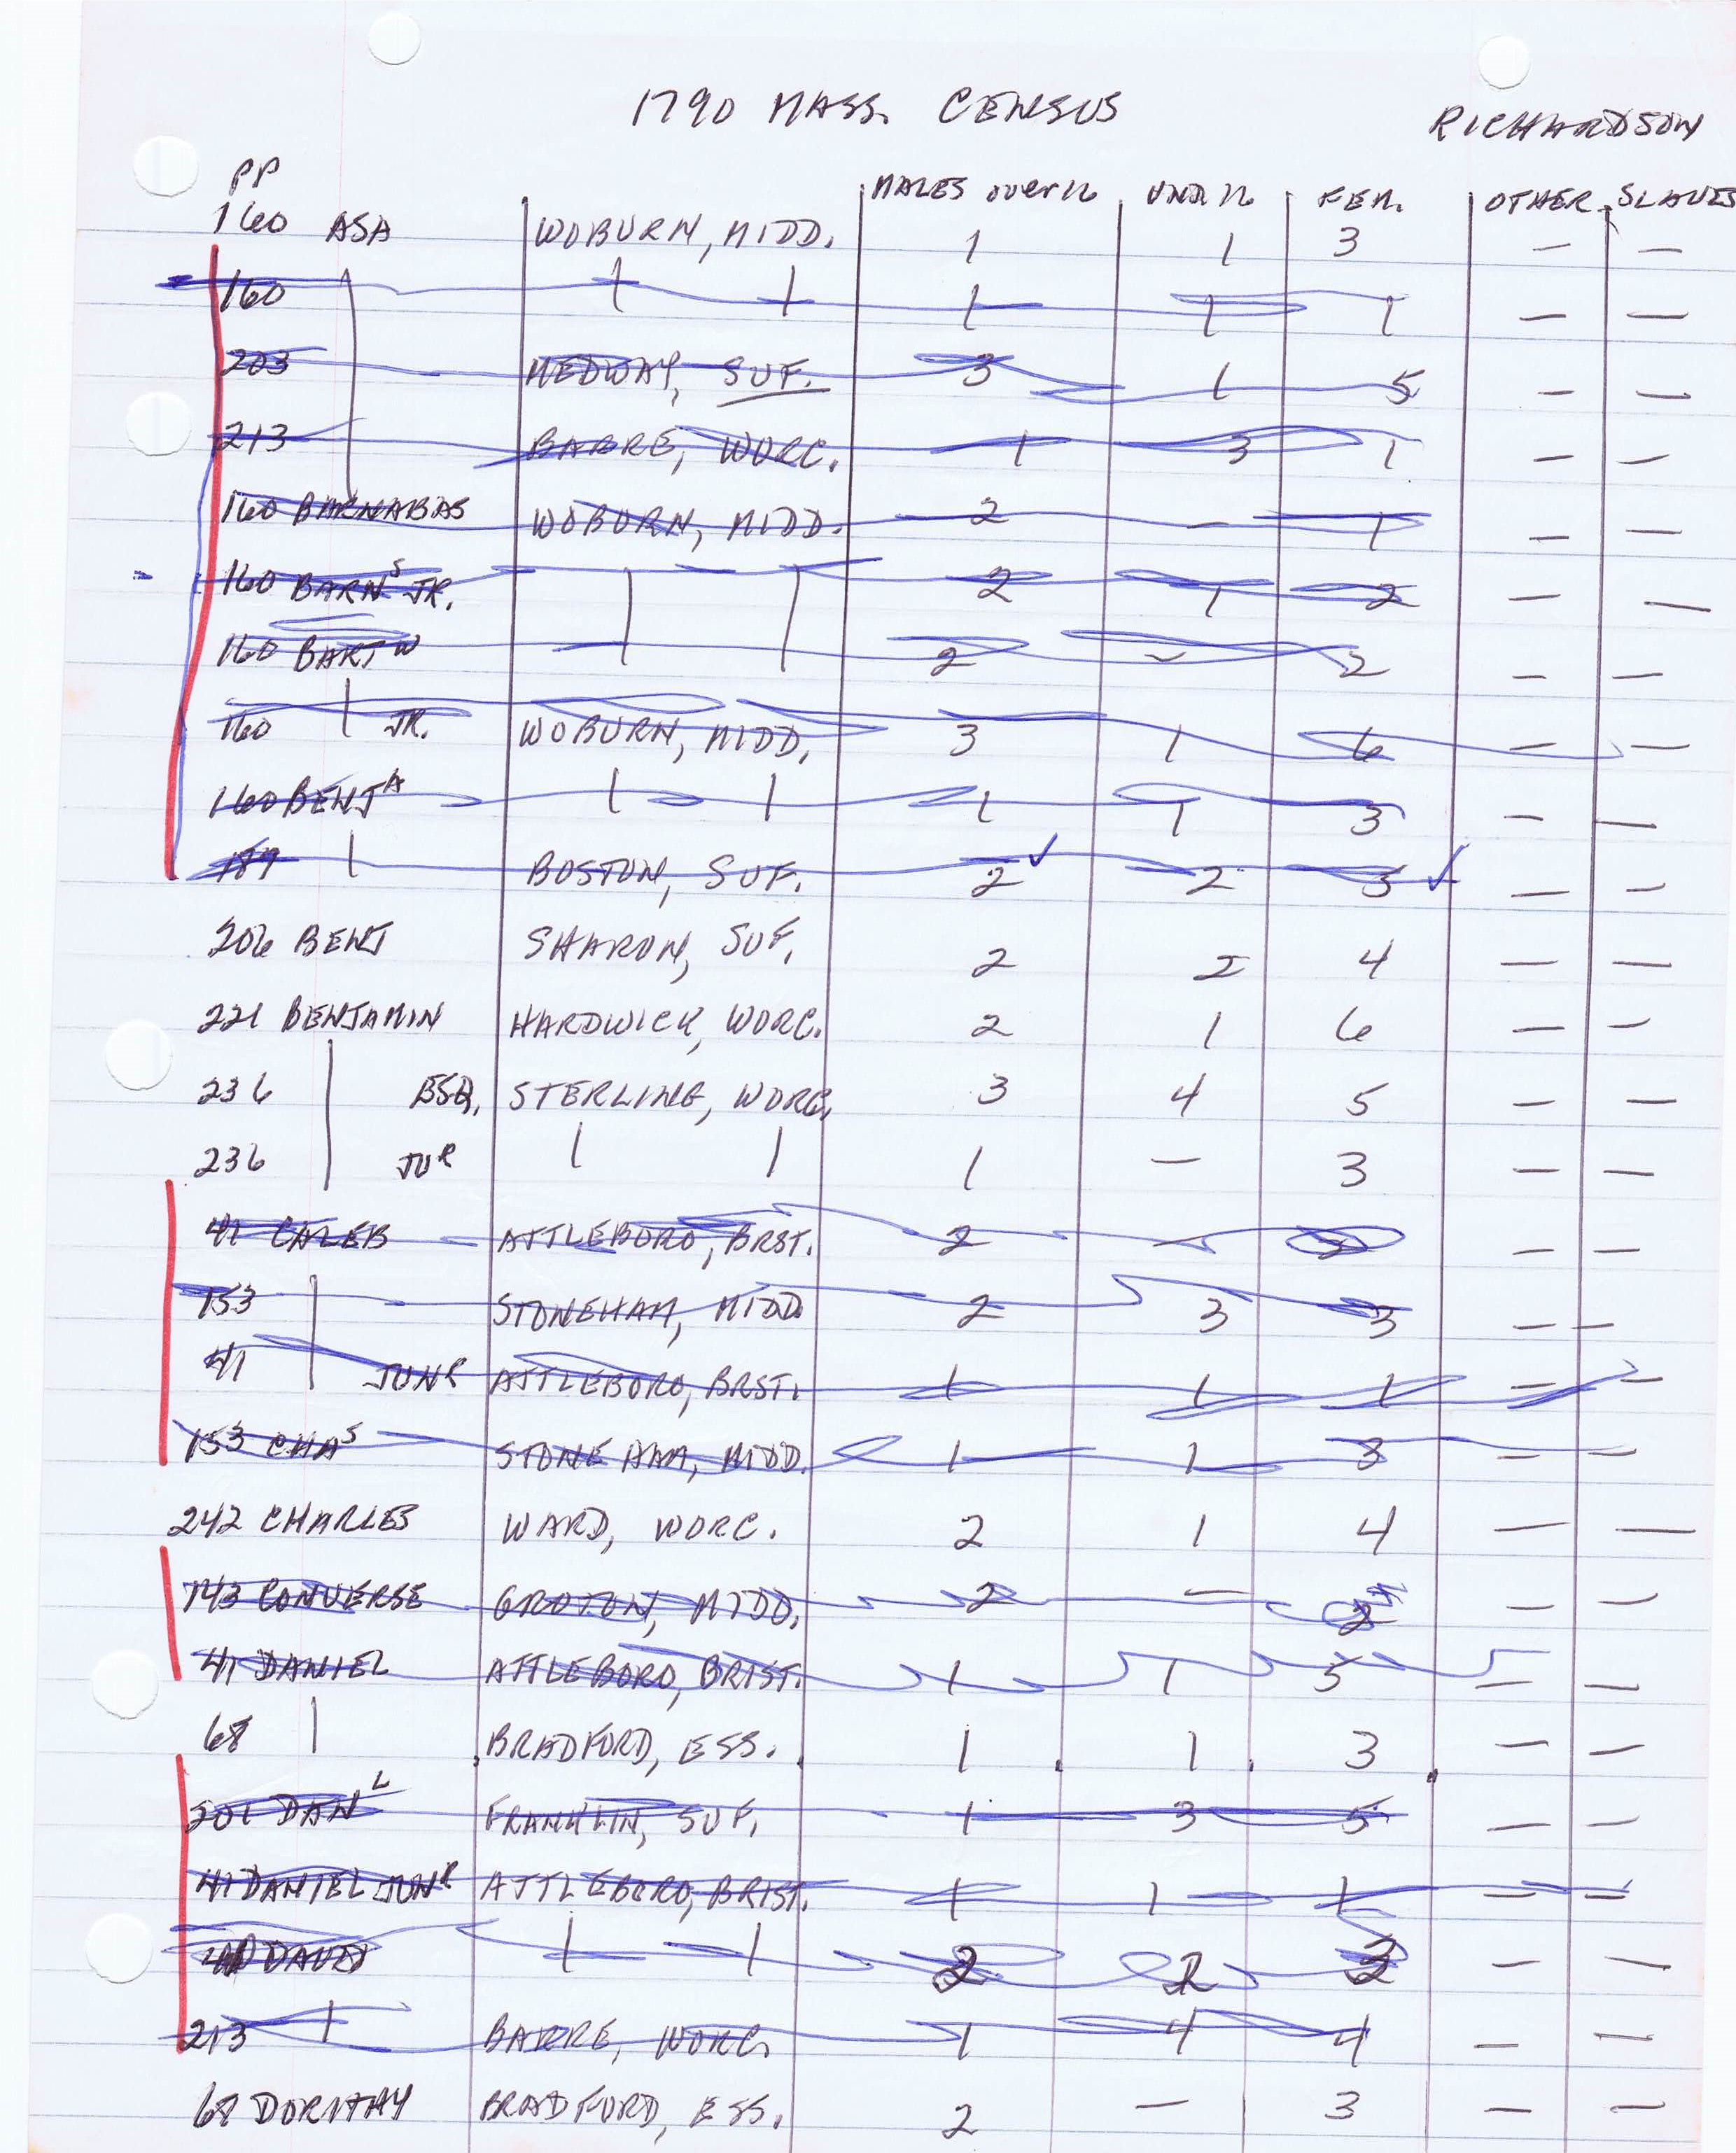 1790 MASS. CENSUS
RICHARDSON
PP MALES over 16 UND 16 FEM. OTHER SLAVES
160 ASA WOBURN, MIDD. 1 1 3 — —
160 | | | 1 1 1 — —
203 | MEDWAY, SUF. 3 1 5 — —
213 | BARRE, WORC. 1 3 1 — —
160 BARNABAS WOBURN, MIDD. 2 — 1 — —
160 BARNS JR. | | 2 1 2 — —
160 BARTW | | 2 — 2 — —
160 | JR. WOBURN, MIDD. 3 1 6 — —
160 BENJA | | 1 1 3 — —
189 | BOSTON, SUF. 2 ✓ 2 3 ✓ — —
206 BENJ SHARON, SUF. 2 2 4 — —
221 BENJAMIN HARDWICK, WORC. 2 1 6 — —
236 | ESQ. STERLING, WORC. 3 4 5 — —
236 | JUR | | 1 — 3 — —
41 CALEB ATTLEBORO, BRST. 2 — — —
153 | STONEHAM, MIDD 2 3 3 — —
41 | JUNR ATTLEBORO, BRST. 1 1 1 — —
153 CHAS STONEHAM, MIDD. 1 1 3 — —
242 CHARLES WARD, WORC. 2 1 4 — —
143 CONVERSE GROTON, MIDD. 2 — 2 — —
41 DANIEL ATTLEBORO, BRIST. 1 1 5 — —
68 | BRADFORD, ESS. 1 1 3 — —
201 DANL FRANKLIN, SUF. 1 3 5 — —
41 DANIEL JUNR ATTLEBORO, BRIST. 1 1 1 — —
DAVID | | 2 2 3 — —
213 | BARRE, WORC. 1 4 4 — —
68 DORITHY BRADFORD, ESS. 2 — 3 — —